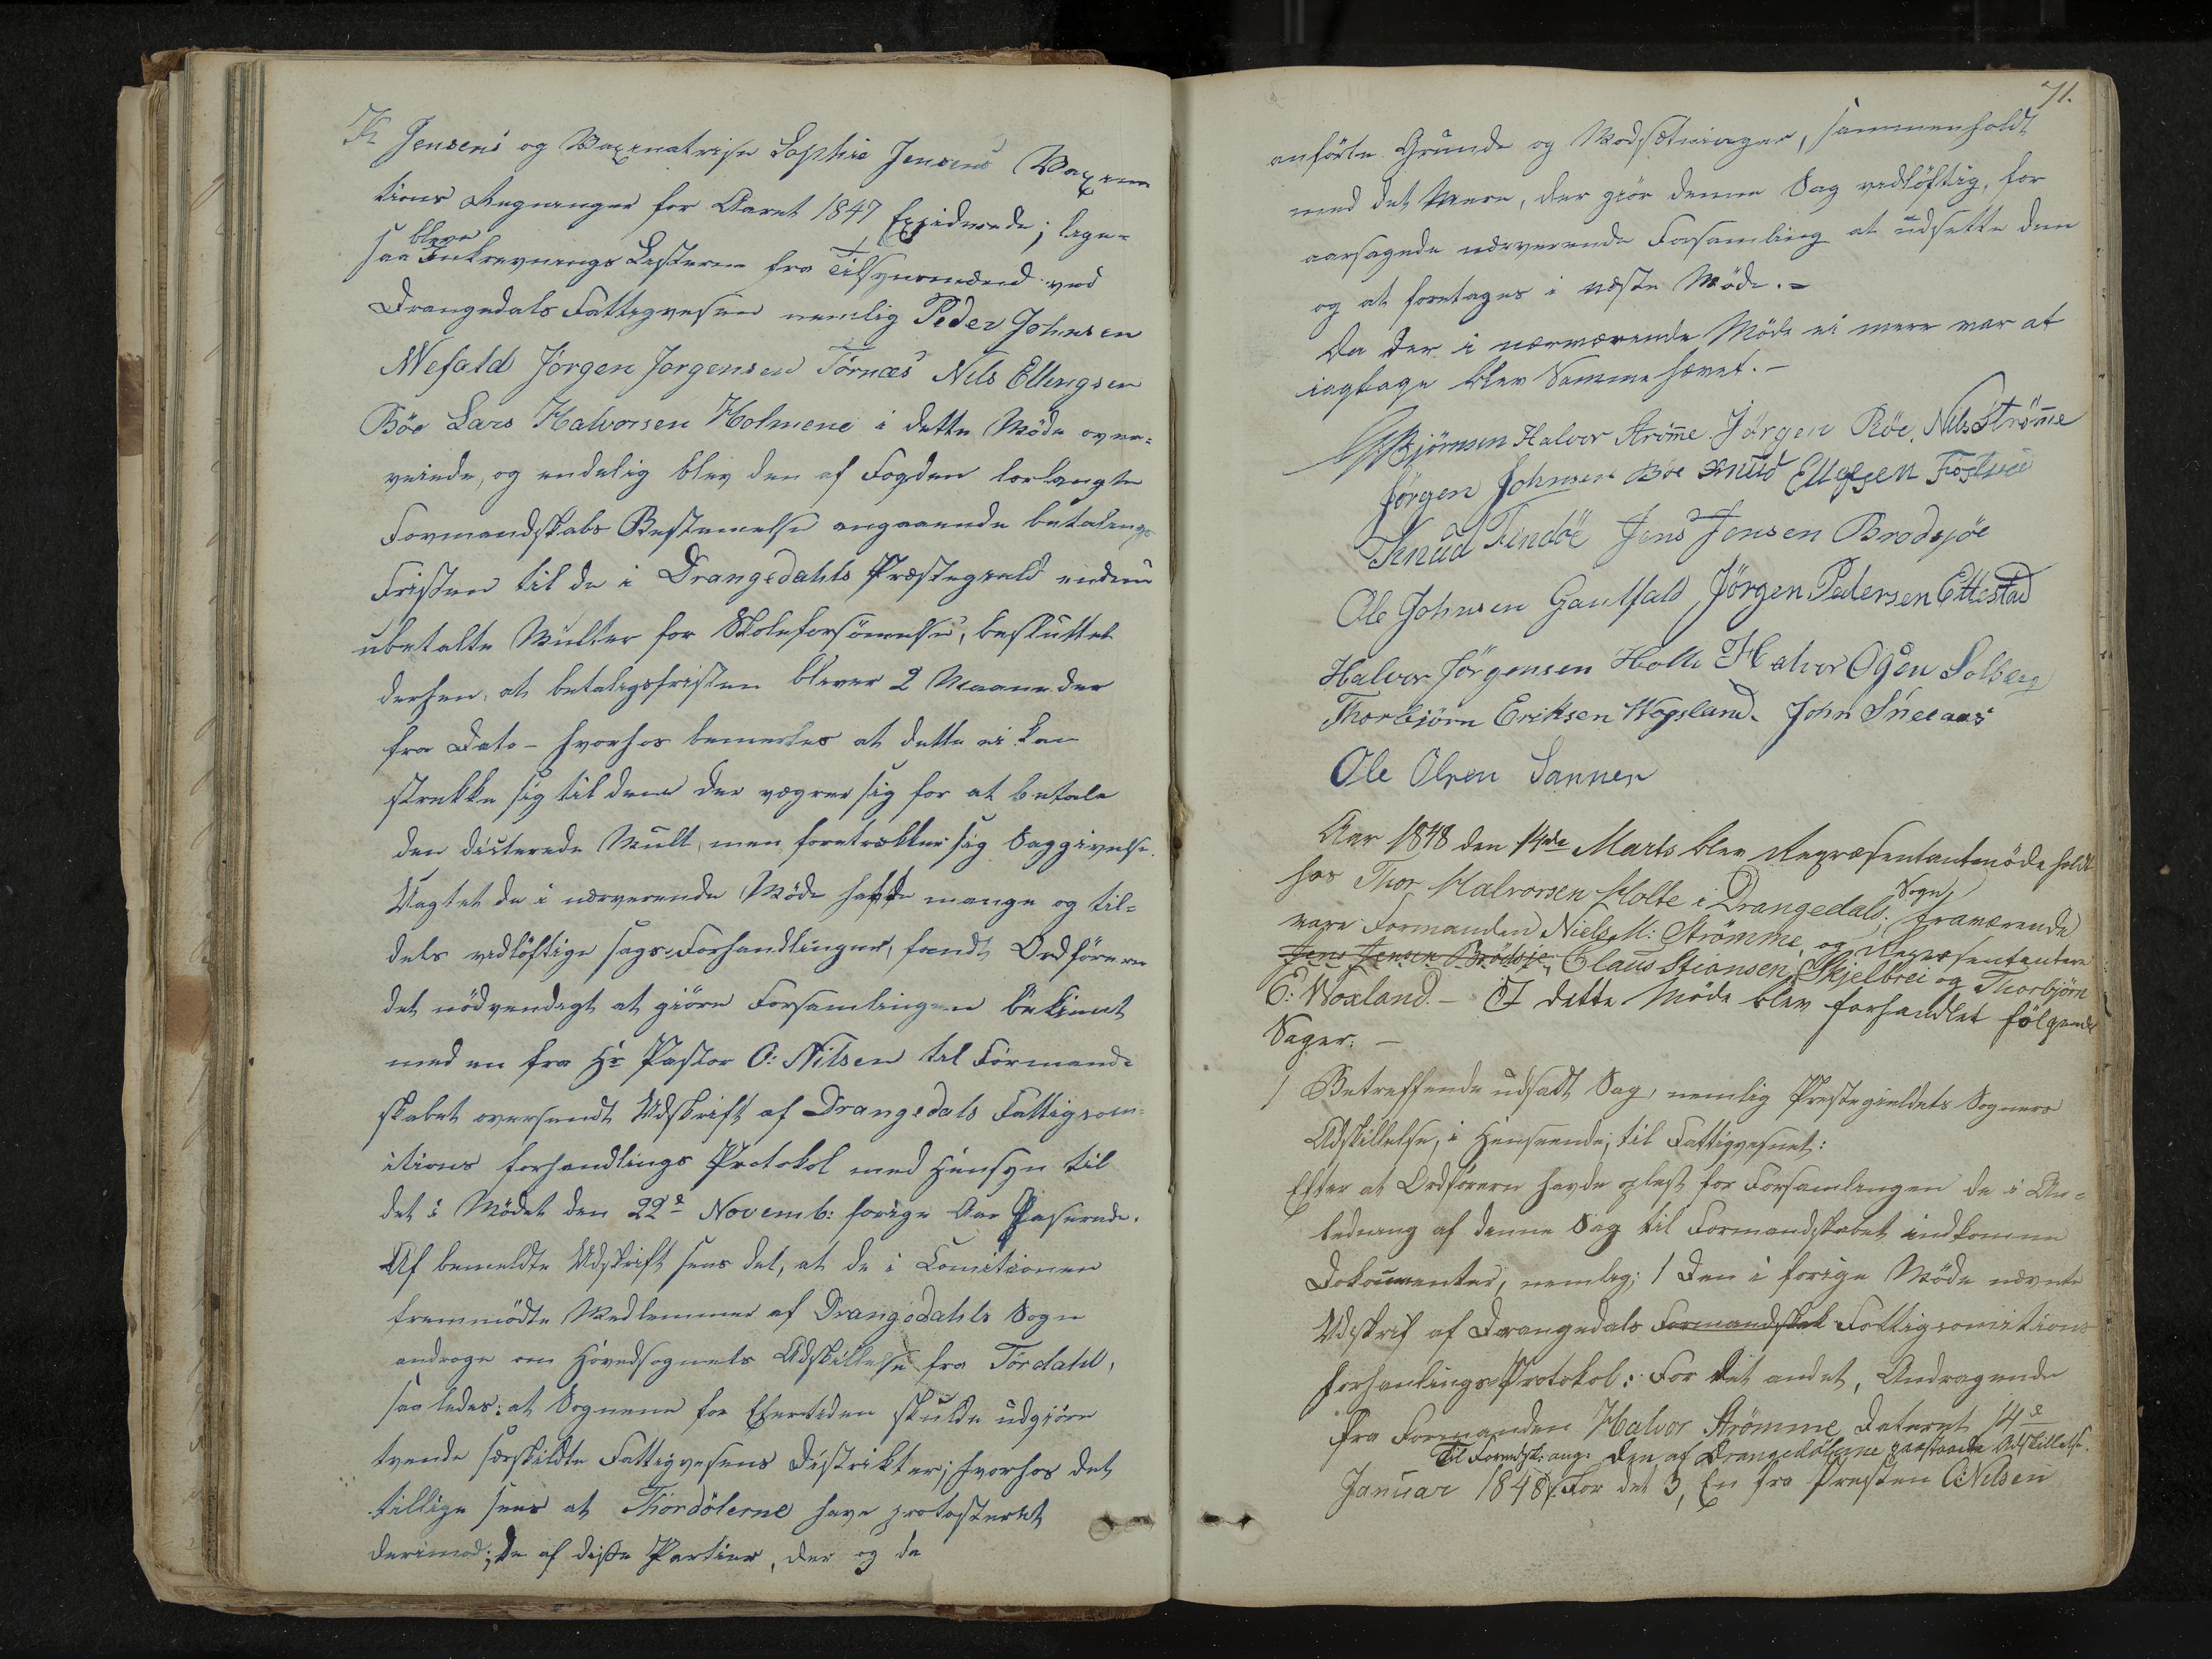 K: Jensens og Vaxinatrise Sophie Jensens Vaxina
tions Regninger for Aaret 1847 Exviderede; lige-
saa bleve Inkrevnings Listerne fra Tilsynsmend ved
Drangedals Fattigvesen nemlig Peder Johnsen
Wefald Jørgen Jørgensen Tørnæs Nils Ellingsen
Bøe Lars Halvorsen Holmene i dette Møde over-
veiede, og endelig blev den af Fogden forlangte
Formandskabs Bestemelse angaaende betalings
Fristen til de i Drangedahls Præstegield endnu
ubetalte Mulkter for Skoleforsømmelse, besluttet
derhen, at betaligsfristen bliver 2 Maaneder
fra Dato - hvorhos bemerkes at dette ei kan
strekke sig til dem der vægrer sig for at betale
den dicterede Mult, men foretrækker sig Saggivelse.
Uagtet de i nærverende Møde hafde mange og til-
dels vidtløftige sags Forhandlinger, fandt Ordføreren
det nødvendigt at giøre Forsamlingen bekient
med en fra Hr Pastor O: Nilsen til Formand-
skabet oversendt Udskrift af Drangedals Fattigcom-
itions forhandlings Protokol med Hensyn til
det i Mødet den 22de Novemb: forige Aar Paserede.
Af bemeldte Udskrift sees det, at de i Comitionen
fremmødte Medlemmer af Drangedahls Sogn
androge om Hovedsognets Adskillelse fra Tørdahl,
saaledes: at Sognene for Efertiden skulde udgiøre
tvende særskildte Fattigvesens Distrikter; hvorhos det
tillige sees at Thørdølerne have protesteret
derimod; de af disse Partier, der og da
71.
anførte Grunde og Modsetninger, sammenholdt
med det Mere, der giør denne Sag vidløftig, for
aarsagede nærverende Forsamling at udsette den
og at foretages i næste Møde. -
Da der i nærværende Møde ei mere var at
iagttage blev Samme hævet. -
Bjørnsen Halvor Strøme Jørgen Røe, Nils Strøme
Jørgen Johnsen Bøe Knud Ellefsen
Knud Tindbæ Jens Jensen Brødsjøe
Ole Johnsen Gautfald, Jørgen Pedersen Ettestad
Halvor Jørgensen Holte Halvor Olsen Solberg
Thorbjørn Eriksen Wogsland. John Sneeaas
Ole Olsen Sannes
Aar 1848 den 14de Marts blev Repræsentantmøde holdt
hos Thor Halvorsen Holte i Drangedals Sogn, fraværende
vare Formanden Niels M: Strømme, og Repræsentantere
Jens Jensen Brødsje, Claus Stiansen, Skjelbrei og Thorbjørn
E: Woxland. - I dette Møde blev forhandlet følgende
Sager: -
1 Betreffende udsadt Sag, nemlig Prestegieldets Sogners
Adskillelse, i Henseende, til Fattigvesnet:
Efter at Ordføreren havde oplest for Forsamlingen de i An-
ledning af denne Sag til Formandskabet indkomne
Dokumenter, nemlig; 1 Den i forige Møde nævnte
Udskrif af Drangedals Formandskab Fattigcomitions
forhanlings Protokol: For det andet, Andragende
fra Formanden Halvor Strømme, Dateret 14de
Til Formdsk: ang: den af Drangedølerne paastaaede Adskillelse.
Januar 1848. For det 3, En fra Presten O: Nilsen